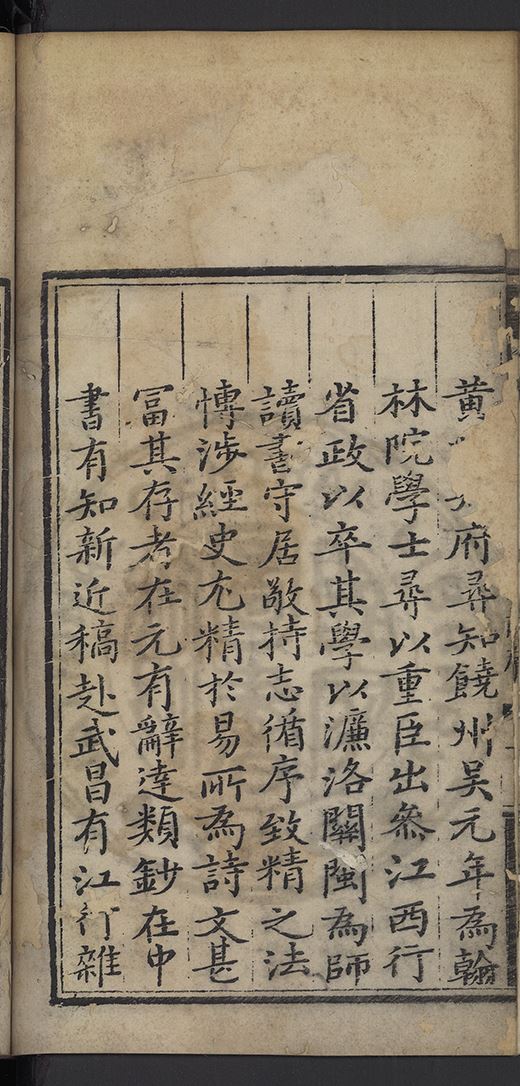 黄府尋知饒州吴元年為翰
林院學士尋以重臣出叅江西行
省政以卒其學以濂洛關閩為師
讀書守居敬持志循序致精之法
愽涉經史尤精於易所為詩文甚
冨其存者在元有辭達類鈔在中
書有知新近稿赴武昌有江行雜